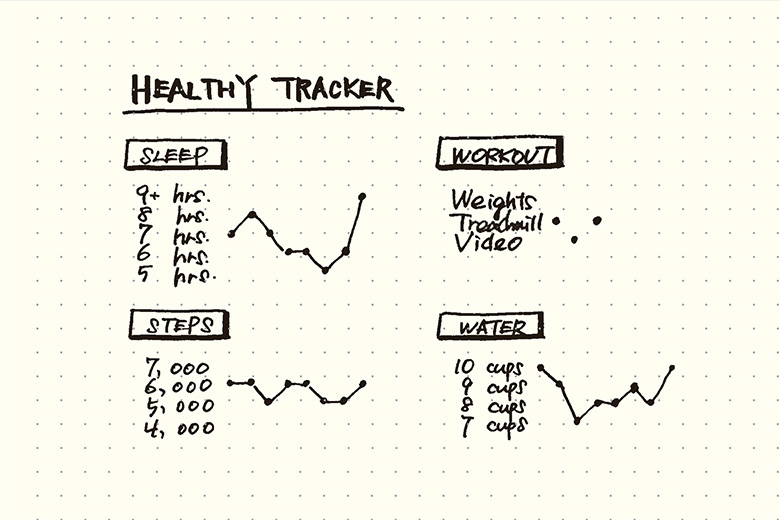 HEALTHY TRACKER
SLEEP
9+ hrs.
8 hrs.
7 hrs.
6 hrs.
5 hrs.
WORKOUT
Weights
Treadmill
Video
STEPS
7,000
6,000
5,000
4,000
WATER
10 cups
9 cups
8 cups
7 cups